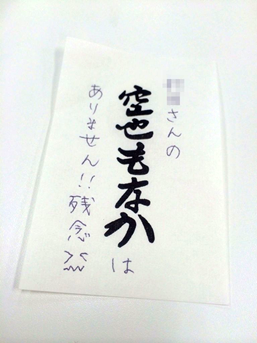 さんの
空也もなかは
ありません!!残念